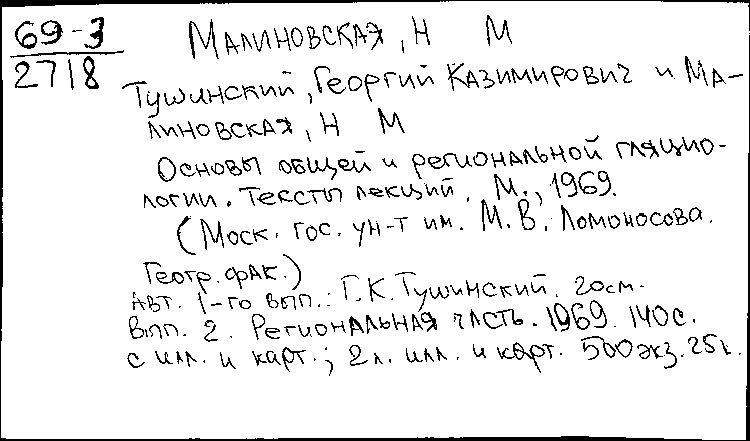 69-3
2718
Малиновская, Н М
Тушинский, Георгий Казимирович и Ма-
линовская, Н М
Основы общей и региональной гляцио-
логии. Тексты лекций. М., 1969.
(Моск. гос. ун-т им. М.В. Ломоносова.
Геогр. фак.)
Авт. 1-го вып.: Г.К. Тушинский. 20см.
Вып. 2. Региональная часть. 1969. 140 с.
с илл. и карт.; 2 л. илл. и карт. 500 экз. 25 к.